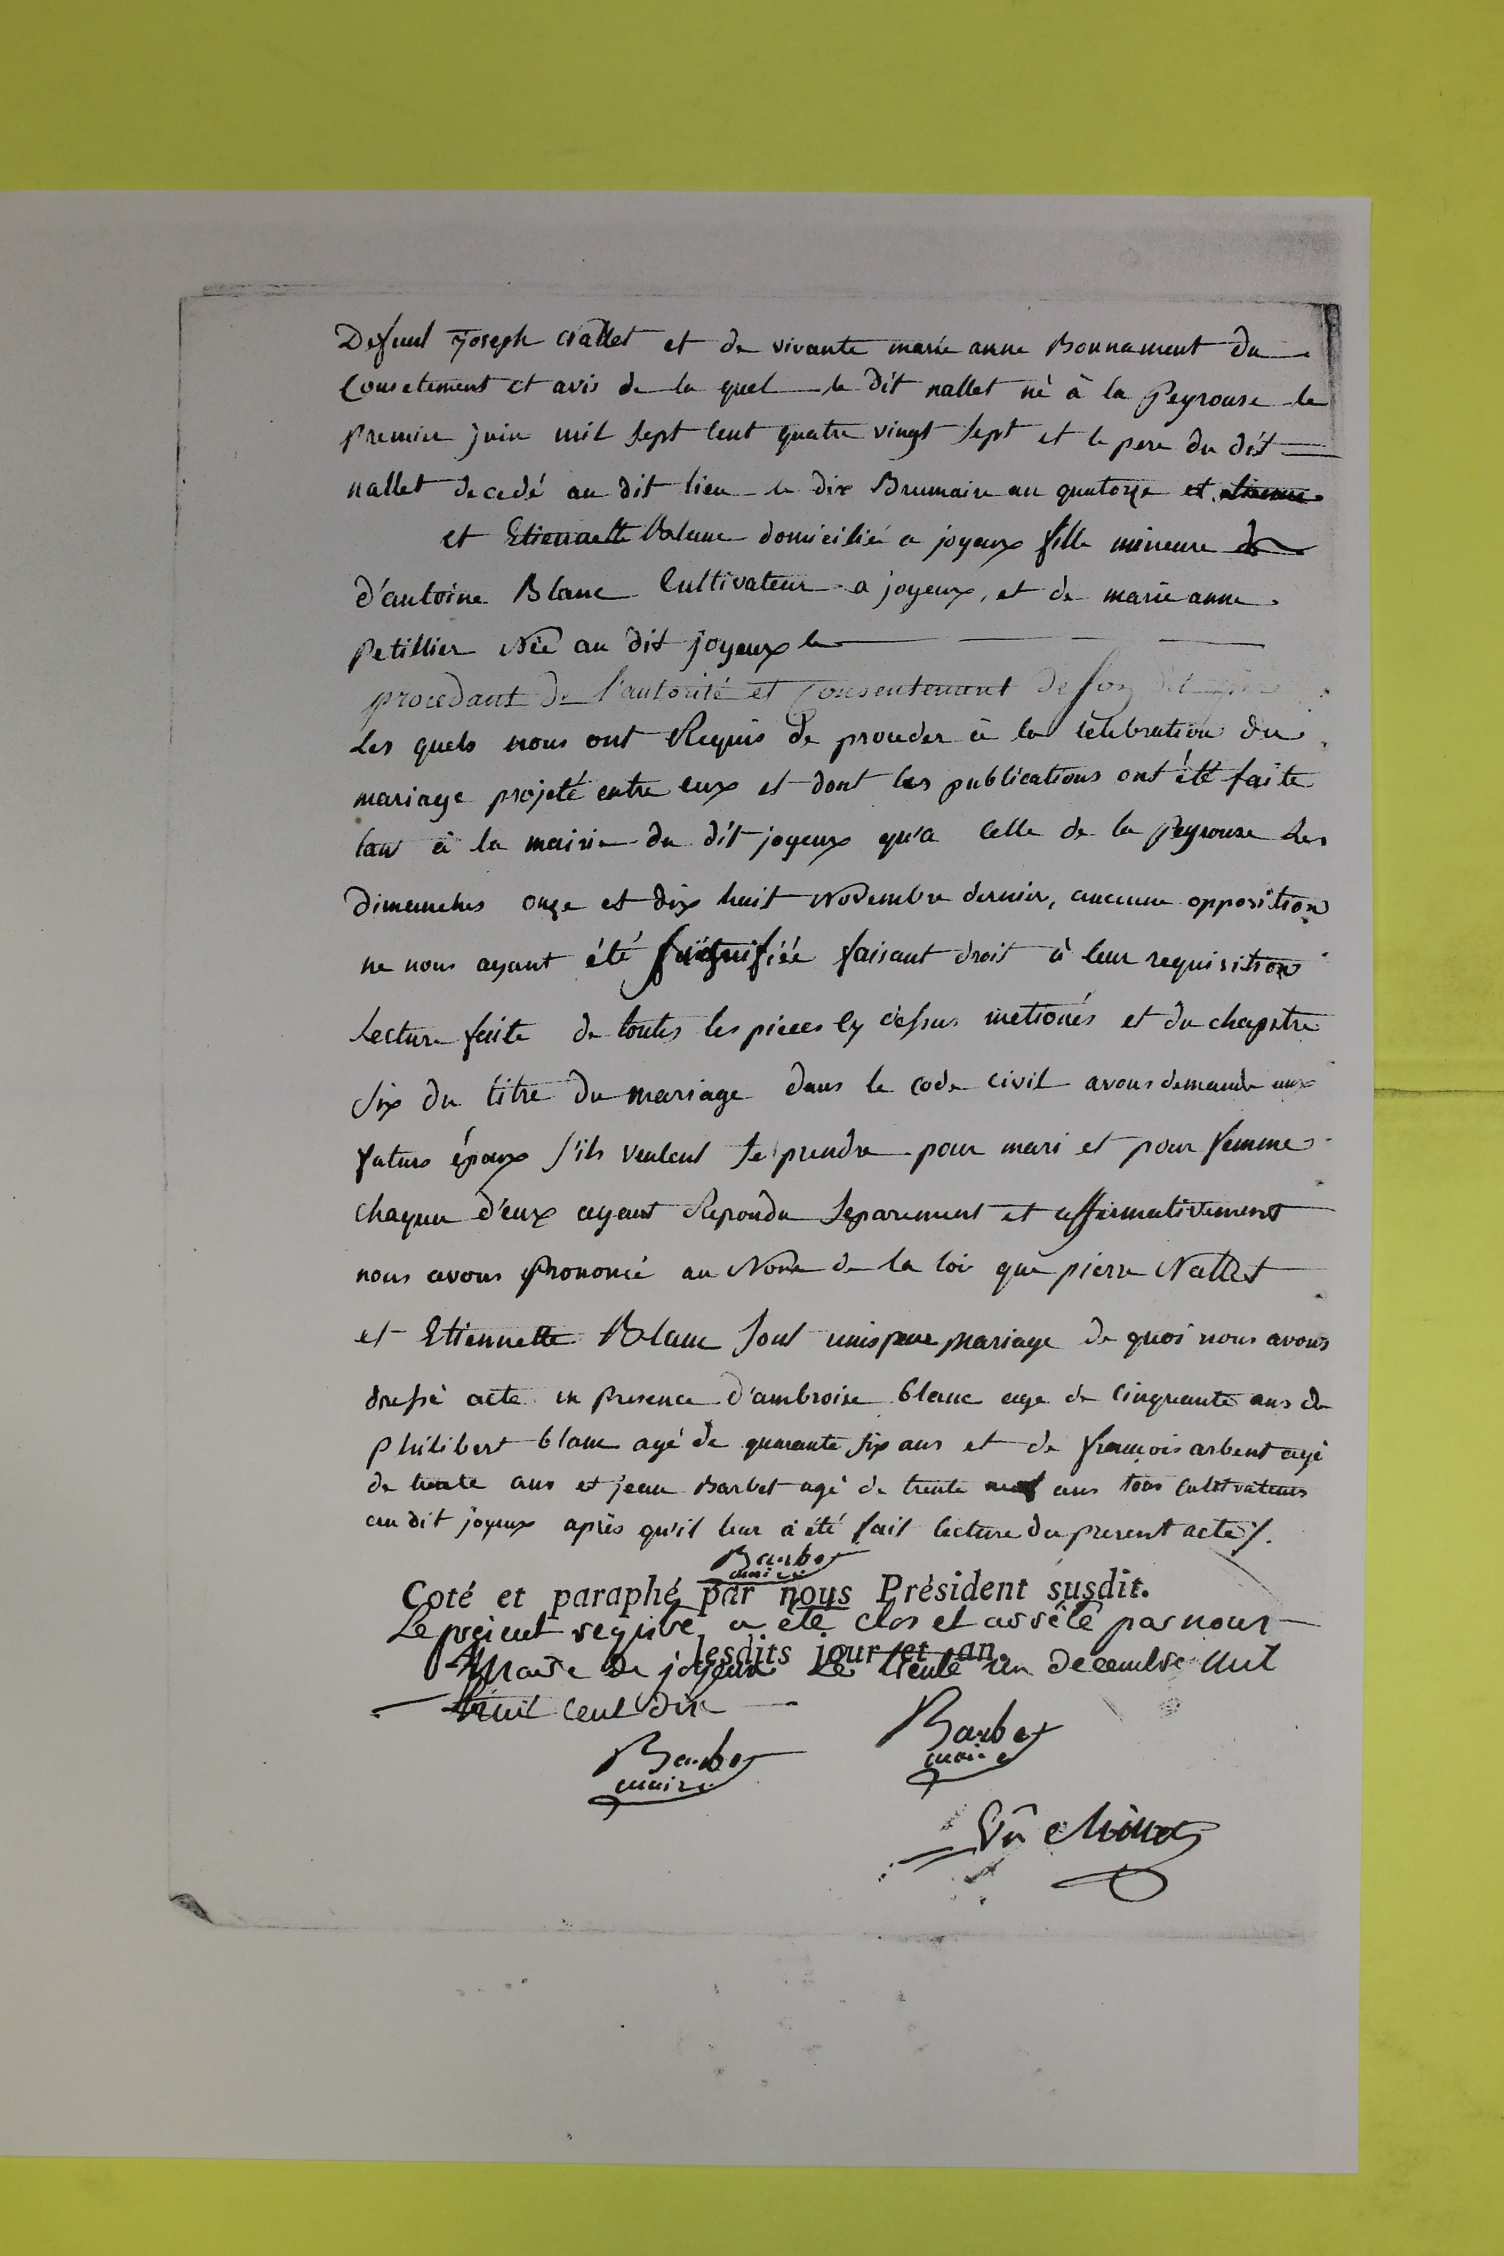 Defunt Joseph Nallet et de vivante marie anne Bonnament du
Consetement et avis de la quel le dit nallet né à la Peyrouse le
premier juin mil sept cent quatre vingt sept et le pere du dit
nallet decedé au dit lieu le dix Brumaire an quatorze et
et Etiennette Blanc domiciliée a joyeux fille mineure de
d'antoine Blanc Cultivateur a joyeux, et de marie anne
Petillier Née au dit joyeux le
procedant de l'autorité et consentement de son dit père
Les quels nous ont Requis de proceder à la célébration du
mariage projeté entre eux et dont les publications ont été faite
tan à la mairie du dit joyeux qu'a celle de la Peyrouse les
Dimanches onze et dix huit Novembre dernier, aucune opposition
ne nous ayant été signifiée faisant droit à leur requisition
Lecture faite de toutes les pieces cy dessus metionés et du chapitre
six du titre du mariage dans le code civil avons demande aux
futurs époux s'ils veulent se prendre pour mari et pour femme
chaqun d'eux ayant Repondu separement et affirmativement
nous avons prononcé au Nom de la loi que pierre Nallet
et Etiennette Blanc sont unis par mariage de quoi nous avons
dressé acte en presence d'ambroise blanc age de cinquante ans de
philibert blanc agé de quarante six ans et de françois arbent agé
de trente ans et jean Barbet agé de trente neuf ans tous cultivateurs
au dit joyeux après qu'il leur a été fait lecture du present acte /.
Barbet
maire
Coté et paraphé par nous Président susdit.
Le present registre a été clos et arrêté par nous
lesdits jour et an.
Maire de joyeux Le trente un decembre mil
huit cent dix
Barbet
maire
Barbet
maire
Vû